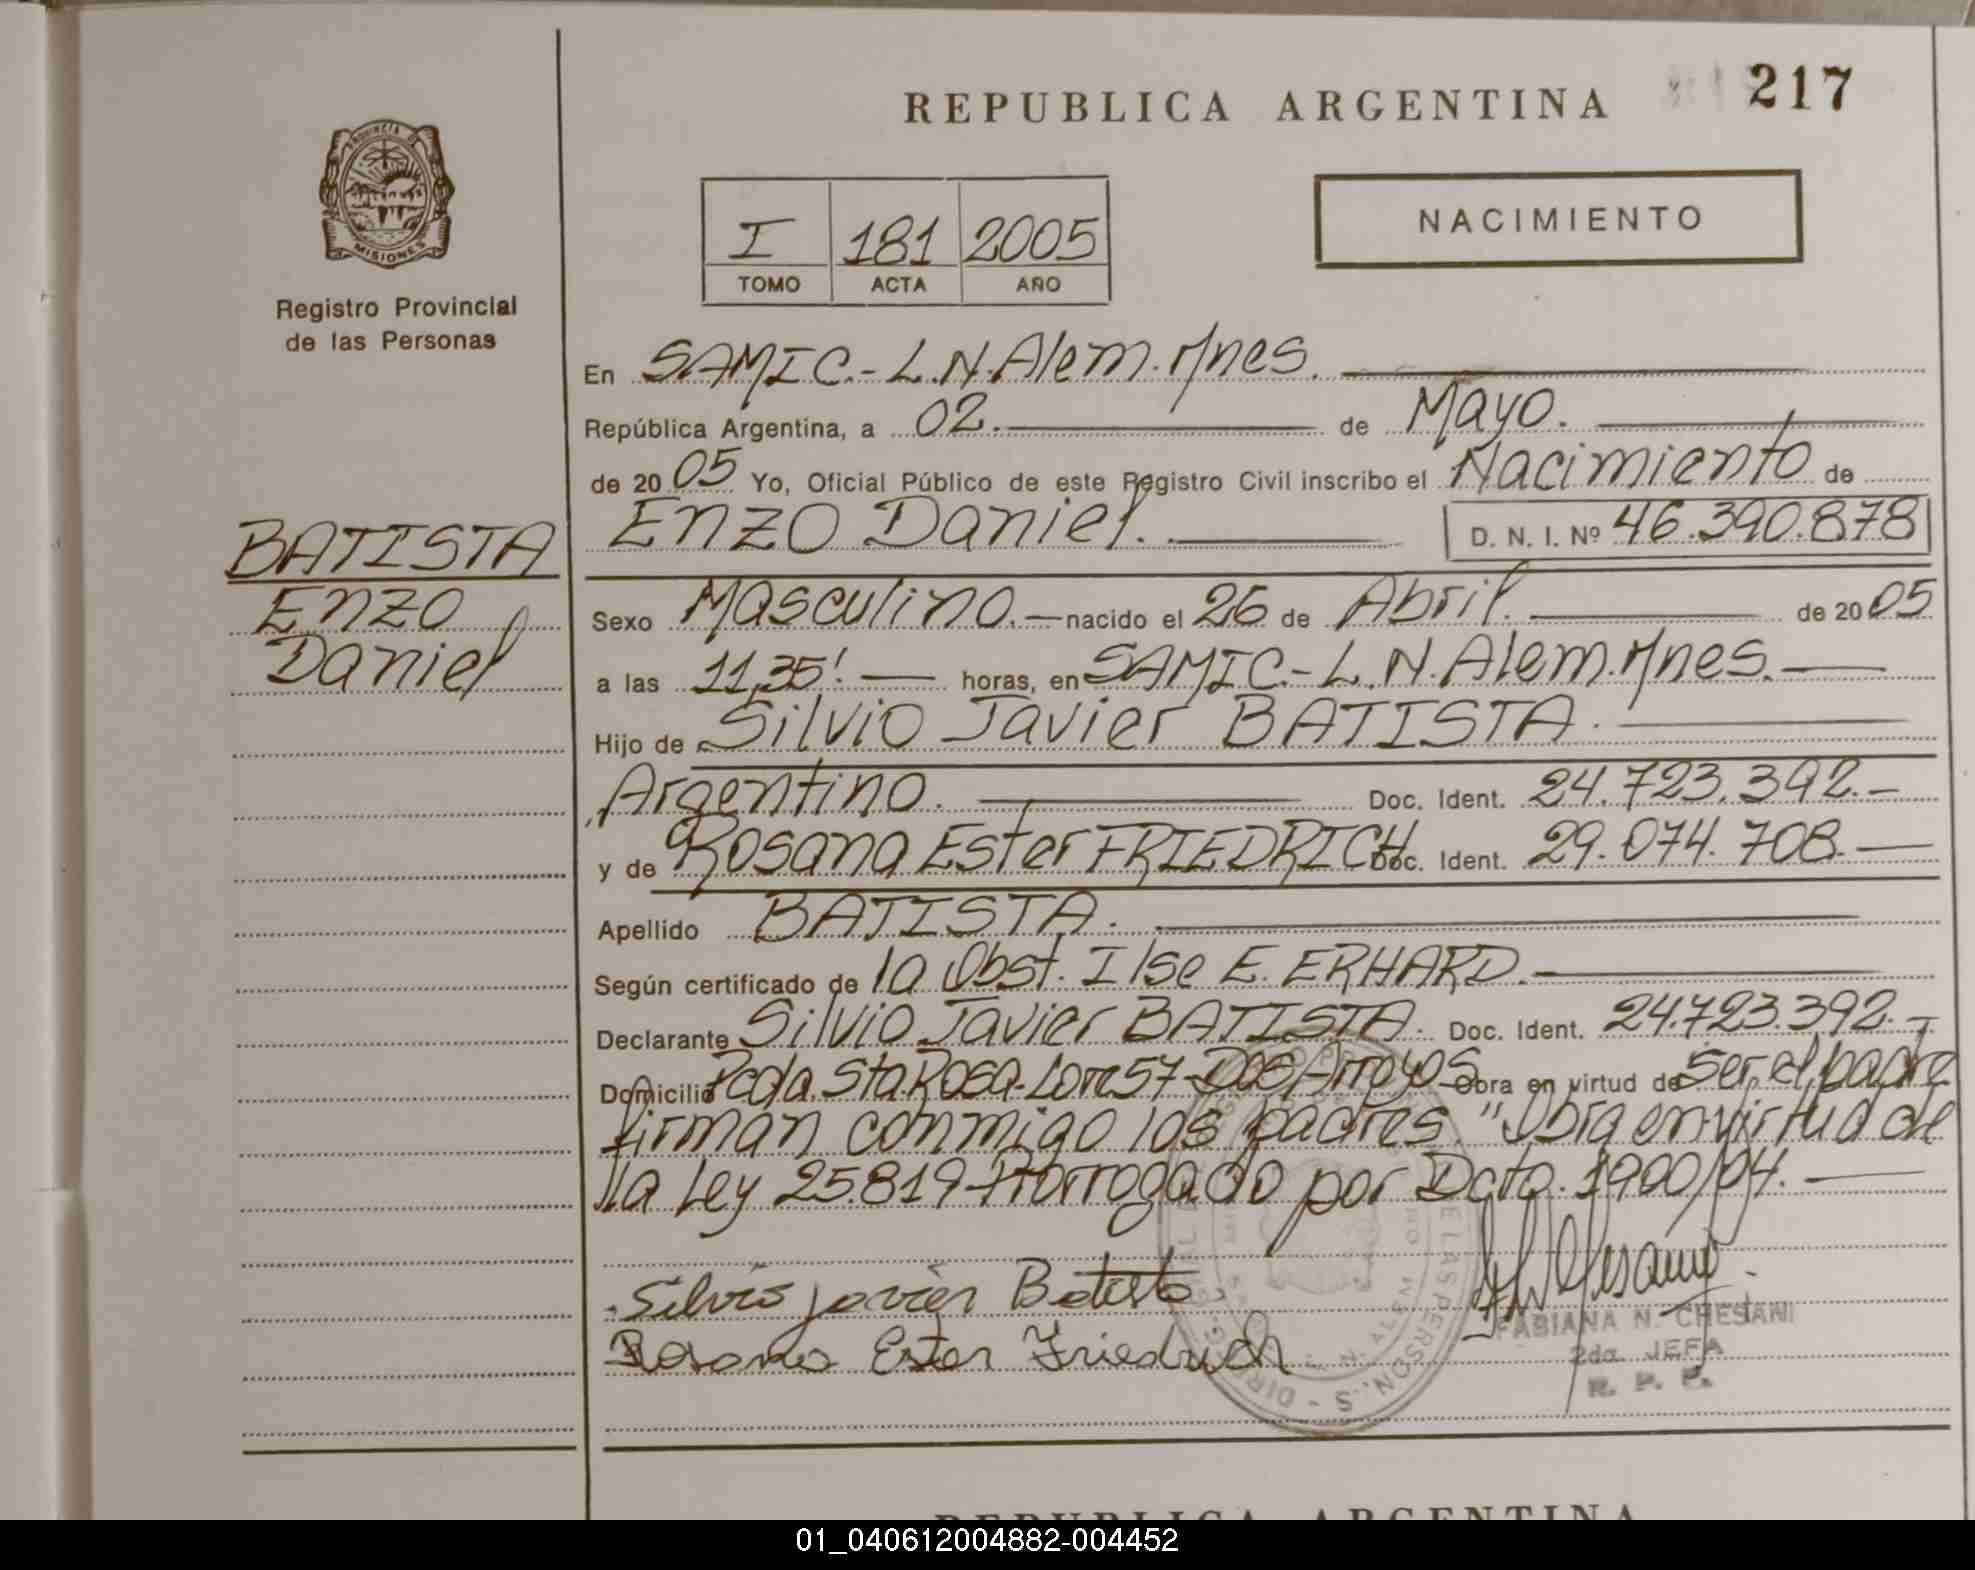 REPUBLICA ARGENTINA
217
PROVINCIA DE
MISIONES
Registro Provincial
de las Personas
I 181 2005
TOMO ACTA AÑO
NACIMIENTO
En SAMIC.-L.N.Alem.Mnes.
República Argentina, a 02. de Mayo.
de 20 05 Yo, Oficial Público de este Registro Civil inscribo el Nacimiento de
Enzo Daniel. D. N. I. Nº 46.390.878
BATISTA
Enzo
Daniel
Sexo Masculino.- nacido el 26 de Abril. de 20 05
a las 11,35'. horas, en SAMIC.-L.N.Alem.Mnes.
Hijo de Silvio Javier BATISTA.
Argentino. Doc. Ident. 24.723.392.-
y de Rosana Ester FRIEDRICH Doc. Ident. 29.074.708.-
Apellido BATISTA.
Según certificado de la Obst. Ilse E. ERHARD.
Declarante Silvio Javier BATISTA. Doc. Ident. 24.723.392.-
Domicilio Pcda. Sta. Rosa-Lote 57-Dos Arroyos Obra en virtud de ser el padre
firman conmigo los padres. "Obra en virtud de
la Ley 25.819-Prorrogado por Dcto. 1900/04.
Silvio Javier Batista
Rosana Ester Friedrich
FABIANA N. CHESANI
2da. JEFA
R. P. P.
REPUBLICA ARGENTINA
01_040612004882-004452